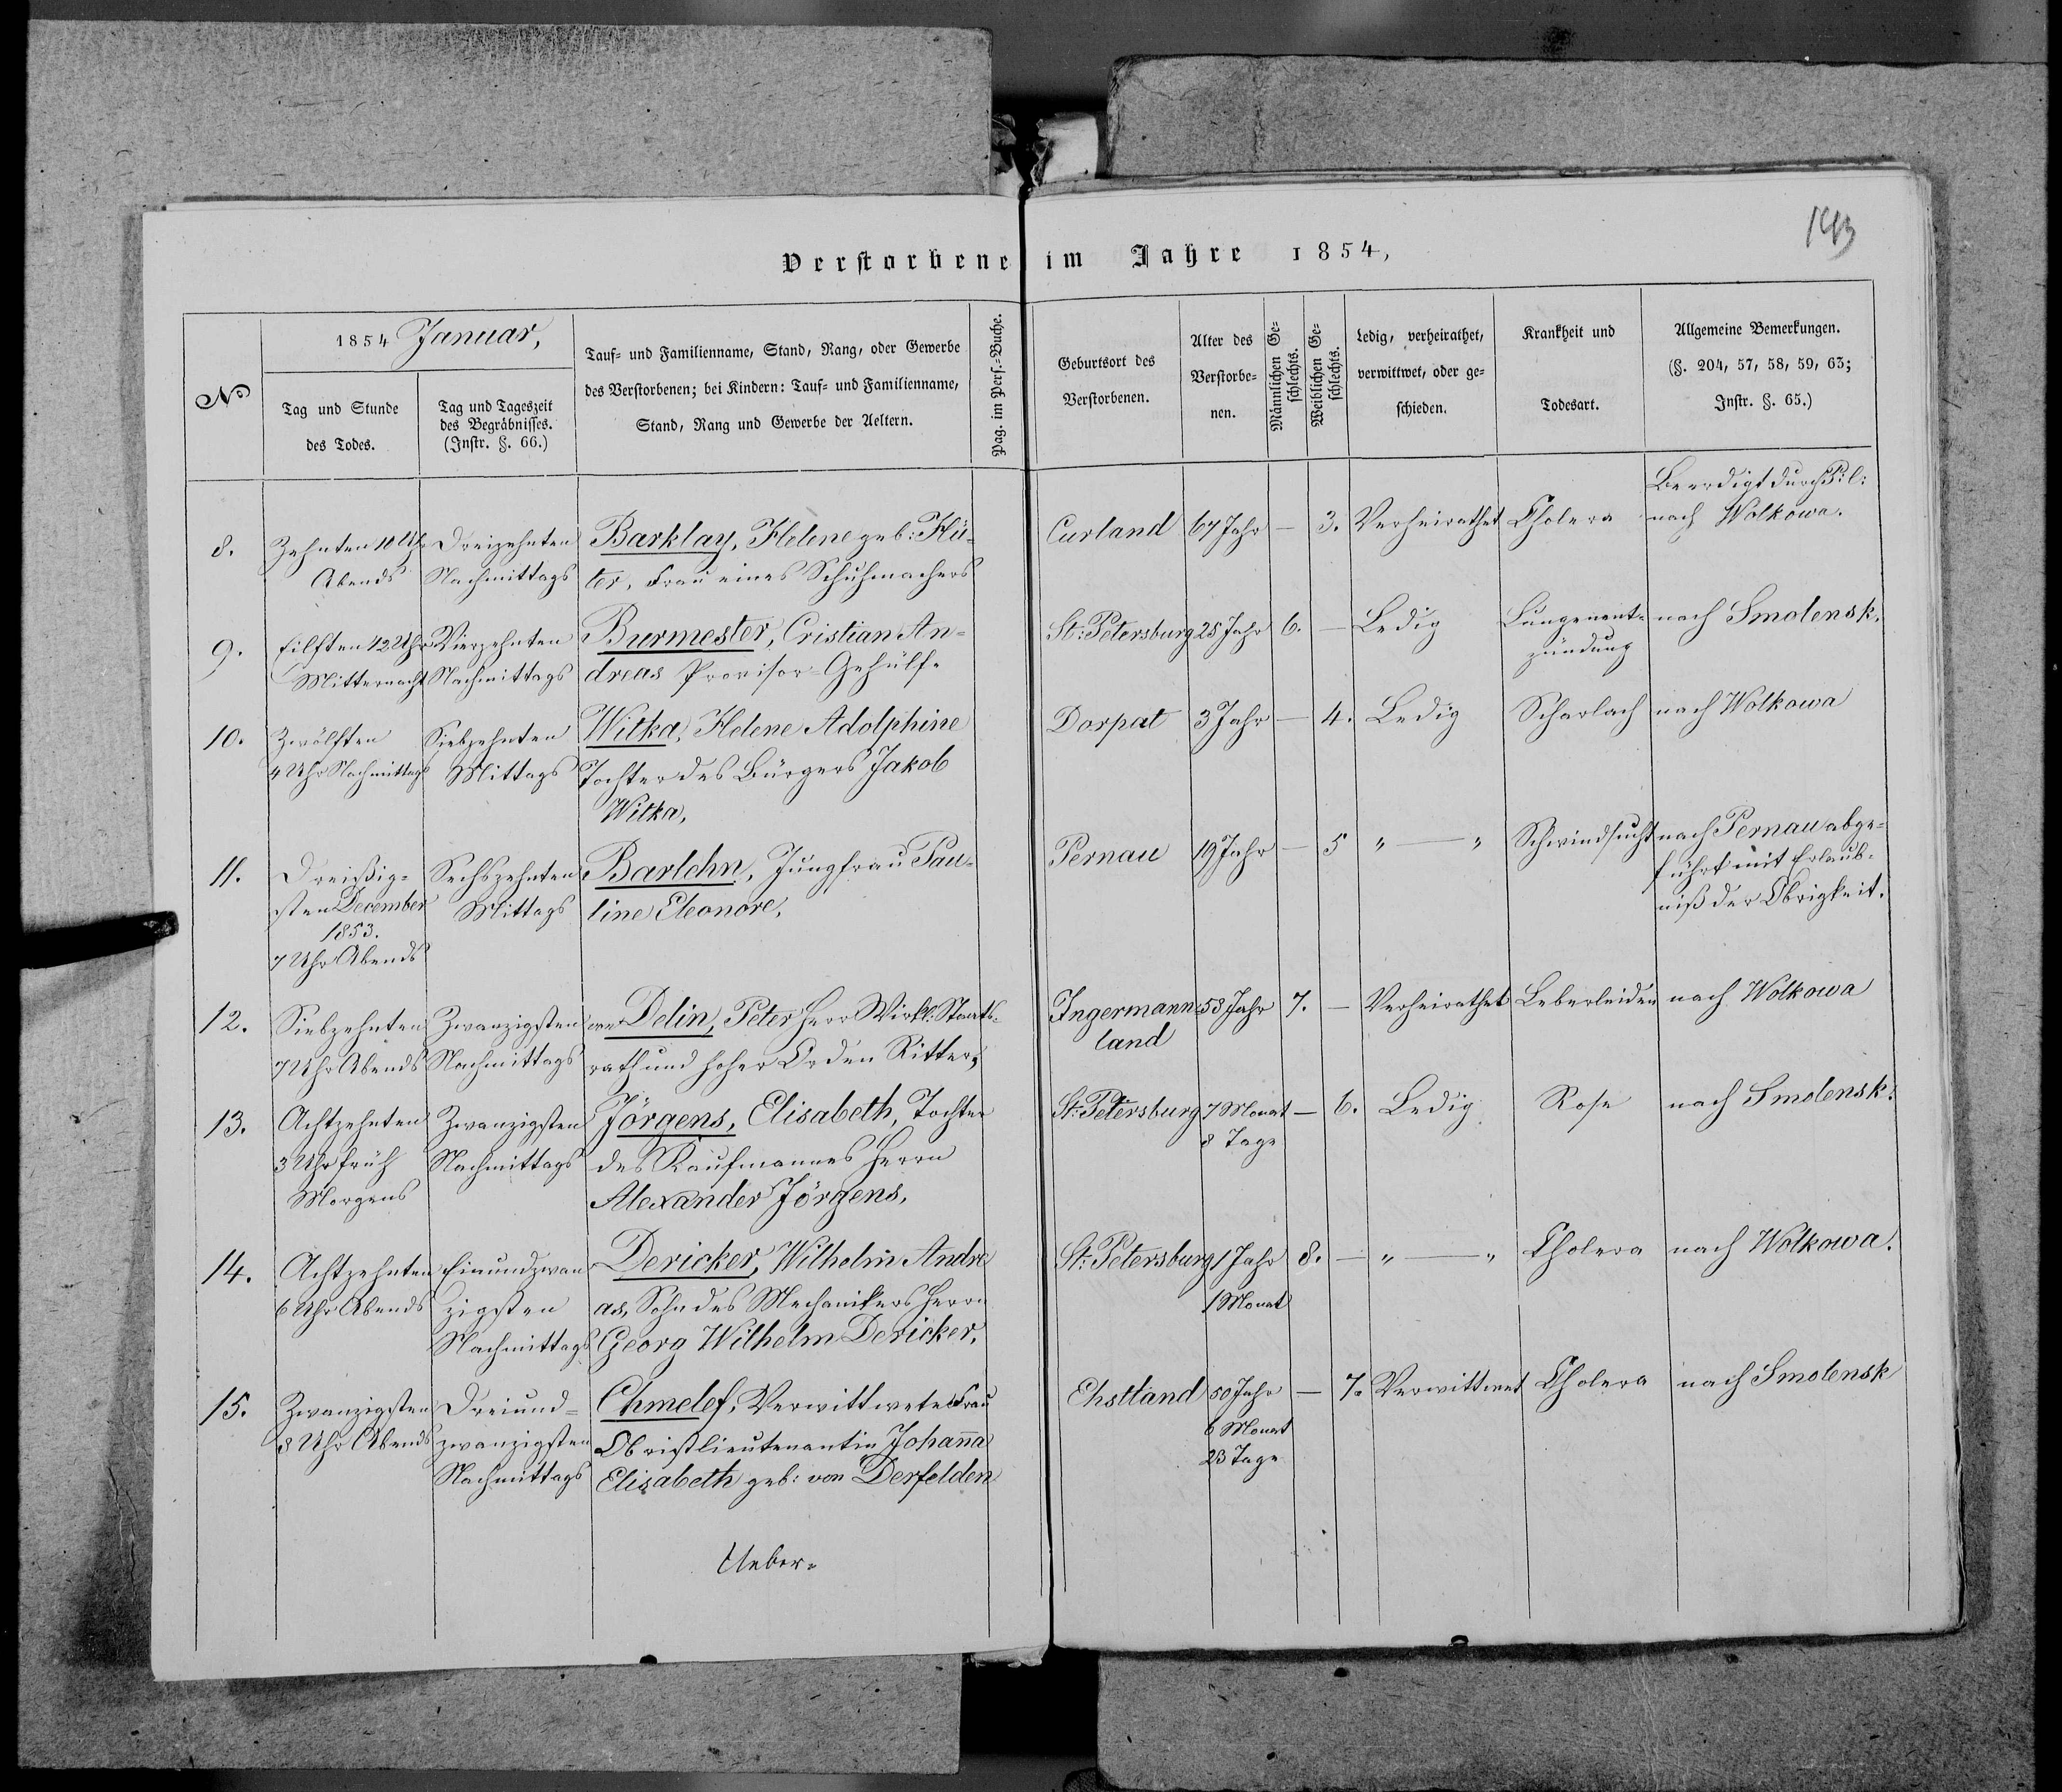 193
Verstorbene im Jahre 1854,
No
1854 Januar,
Tag und Stunde
des Todes.
Tag und Tageszeit
des Begräbnisses.
(Instr. §. 66.)
Tauf- und Familienname, Stand, Rang, oder Gewerbe
des Verstorbenen; bei Kindern: Tauf- und Familienname,
Stand, Rang und Gewerbe der Aeltern.
Pag. im Pers.-Buche.
Geburtsort des
Verstorbenen.
Alter des
Verstorbe-
nen.
Männlichen Ge-
schlechts.
Weiblichen Ge-
schlechts.
Ledig, verheirathet,
verwittwet, oder ge-
schieden.
Krankheit und
Todesart.
Allgemeine Bemerkungen.
(§. 204, 57, 58, 59, 63;
Instr. §. 65.)
8.
Zehnten 10 Uhr
Abends
Dreizehnten
Nachmittags
Barklay, Helene geb: Hü-
ter, Frau eines Schuhmachers
Curland
67 Jahr
—
3.
Verheirathet
Cholera
Beerdigt durch P: l:
nach Wolkowa.
9.
Eilften 12 Uhr
Mitternacht
Vierzehnten
Nachmittags
Burmester, Cristian An-
dreas Provisor-Gehülfe
St: Petersburg
25 Jahr
6.
—
Ledig
Lungenent-
zündung
nach Smolensk.
10.
Zwölften
4 Uhr Nachmittags
Siebzehnten
Mittags
Witka, Helene Adolphine
Tochter des Bürgers Jakob
Witka,
Dorpat
3 Jahr
—
4.
Ledig
Scharlach
nach Wolkowa
11.
Dreißig-
sten December
1853.
7 Uhr Abends
Sechszehnten
Mittags
Barlehn, Jungfrau Pau-
line Eleonore,
Pernau
19 Jahr
—
5
" — "
Schwindsucht
nach Pernau abge-
führt mit Erlaub-
niß der Obrigkeit.
12.
Siebzehnten
7 Uhr Abends
Zwanzigsten
Nachmittags
von Delin, Peter Herr Wirkl: Staats-
rath und hoher Orden Ritter,
Ingermann-
land
53 Jahr
7.
—
Verheirathet
Leberleiden
nach Wolkowa
13.
Achtzehnten
3 Uhr früh
Morgens
Zwanzigsten
Nachmittags
Jörgens, Elisabeth, Tochter
des Kaufmannes Herrn
Alexander Jörgens,
St: Petersburg
7 Monat
8 Tage
—
6.
Ledig
Rose
nach Smolensk.
14.
Achtzehnten
6 Uhr Abends
Einundzwan
zigsten
Nachmittags
Dericker, Wilhelm Andre
as, Sohn des Mechanikers Herrn
Georg Wilhelm Dericker,
St: Petersburg
1 Jahr
1 Monat
8.
—
" — "
Cholera
nach Wolkowa.
15.
Zwanzigsten
8 Uhr Abends
Dreiund-
zwanzigsten
Nachmittags
Chmelef, Verwittwete Frau
Obristlieutenantin Johanna
Elisabeth geb: von Derfelden
Ehstland
50 Jahr
6 Monat
23 Tage
—
7.
Verwittwet
Cholera
nach Smolensk
Ueber-